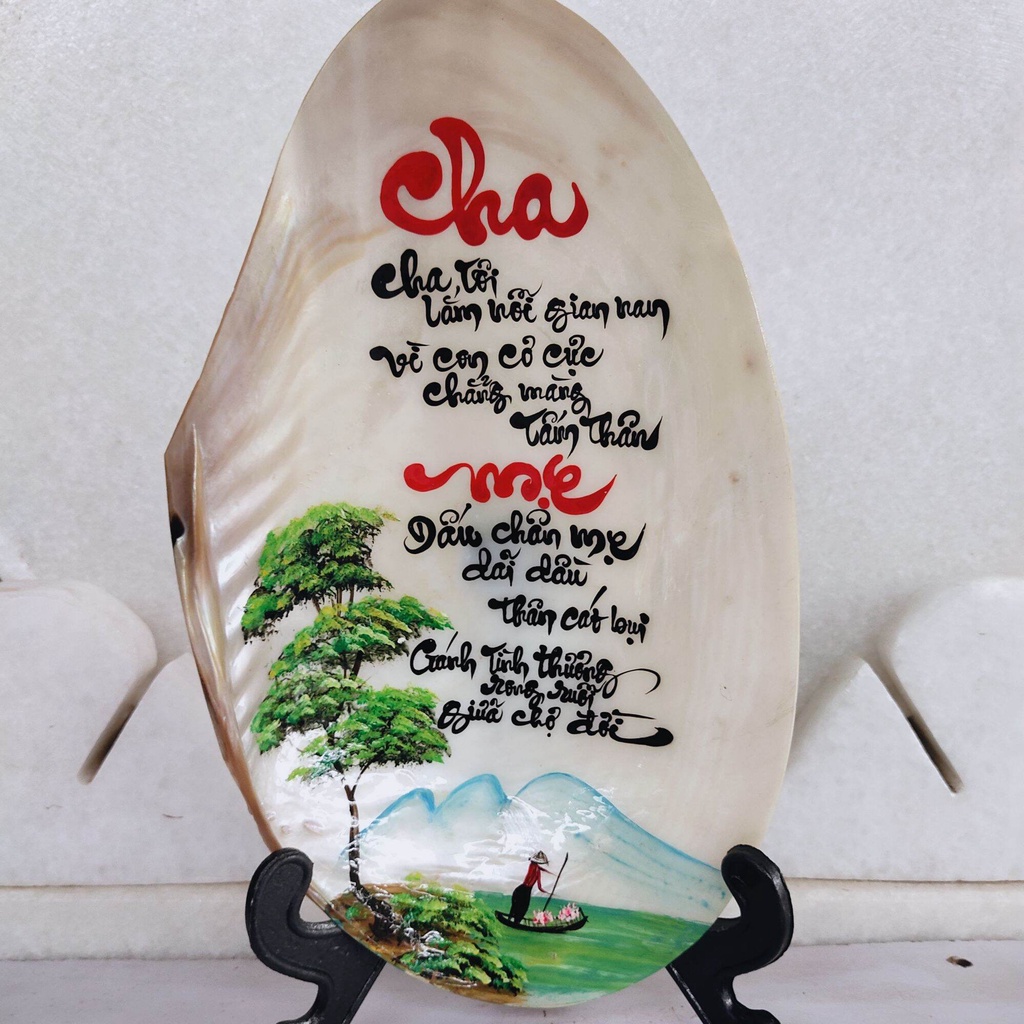 cha
cha tôi
lắm nỗi gian nan
vì con cơ cực
chẳng màng
tấm thân
mẹ
Dấu chân mẹ
dãi dầu
thân cát bụi
Gánh tình thương
rong ruổi
giữa chợ đời